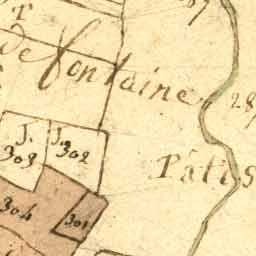 T
de fontaine
J. J.
303 302
Pâtis
304 301